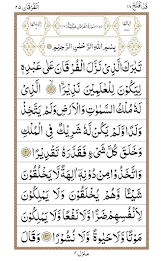 قد افلح ١٨
الفرقان ٢٥
بِسْمِ اللّٰهِ الرَّحْمٰنِ الرَّحِيْمِ
تَبٰرَكَ الَّذِىْ نَزَّلَ الْفُرْقَانَ عَلٰى عَبْدِهٖ
لِيَكُوْنَ لِلْعٰلَمِيْنَ نَذِيْرًا ۙ الَّذِىْ
لَهٗ مُلْكُ السَّمٰوٰتِ وَالْاَرْضِ وَلَمْ يَتَّخِذْ
وَلَدًا وَّلَمْ يَكُنْ لَّهٗ شَرِيْكٌ فِى الْمُلْكِ
وَخَلَقَ كُلَّ شَىْءٍ فَقَدَّرَهٗ تَقْدِيْرًا
وَاتَّخَذُوْا مِنْ دُوْنِهٖۤ اٰلِهَةً لَّا يَخْلُقُوْنَ
شَيْئًا وَّهُمْ يُخْلَقُوْنَ وَلَا يَمْلِكُوْنَ
لِاَنْفُسِهِمْ ضَرًّا وَّلَا نَفْعًا وَّلَا يَمْلِكُوْنَ
مَوْتًا وَّلَا حَيٰوةً وَّلَا نُشُوْرًا وَقَالَ